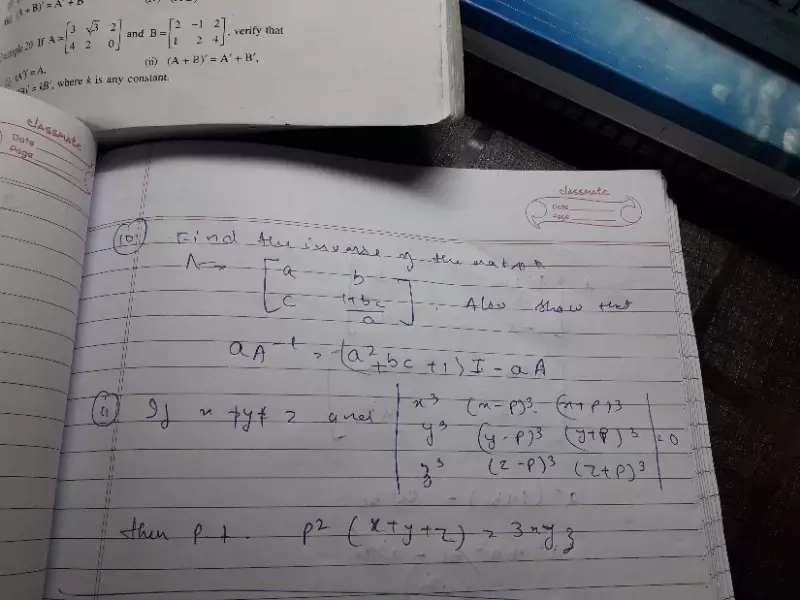 (A + B)' = A' + B'
Example 20 If A = [3 √3 2; 4 2 0] and B = [2 -1 2; 1 2 4], verify that
(i) (A')' = A, (ii) (A + B)' = A' + B',
= kB', where k is any constant.
classmate
Date
Page
classmate
Date
Page
(10) Find the inverse of the matrix
A = [a b; c (1+bc)/a]. Also show that
aA⁻¹ = (a² + bc + 1) I - aA
(11) If x ≠ y ≠ z and |x³ (x-p)³ (x+p)³; y³ (y-p)³ (y+p)³; z³ (z-p)³ (z+p)³| = 0
then p t. p² (x+y+z) = 3xyz